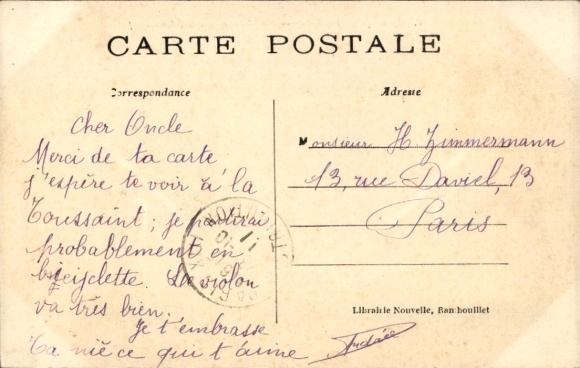 CARTE POSTALE
Correspondance
Adresse
Cher Oncle
Merci de ta carte.
j'espère te voir à la
Toussaint; je partirai
probablement en
bicyclette. Le violon
va très bien.
Je t'embrasse
Ta nièce qui t'aime
Monsieur H. Zimmermann
13, rue Daviel, 13
Paris
Librairie Nouvelle, Rambouillet